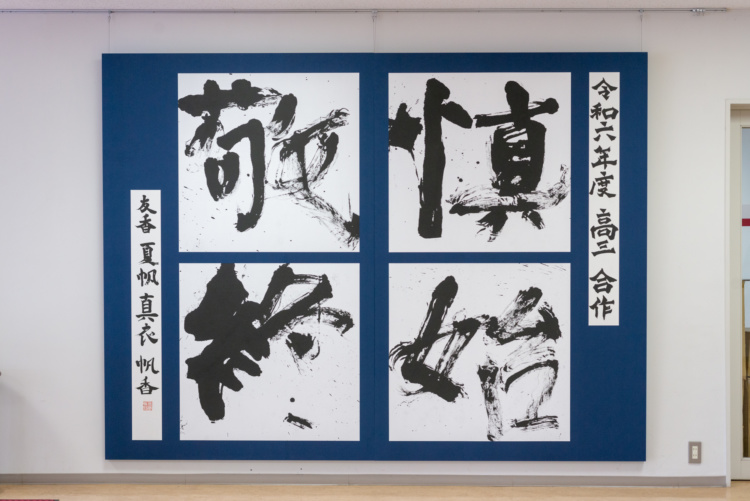 令和六年度 高三 合作
慎始
敬終
友香 夏帆 真衣 帆香